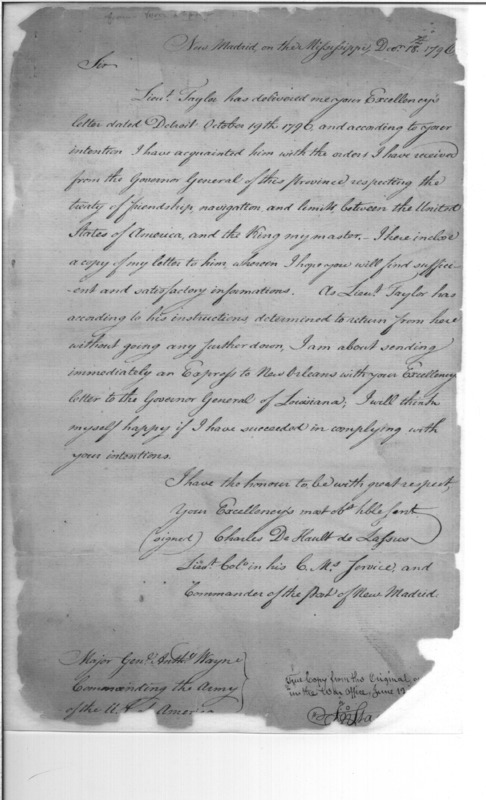 New Madrid on the Mississippi, Decr. 18th. 1796
Sir
Lieut. Taylor has delivered me your Excellency's
letter dated Detroit October 19th 1796, and according to your
intention I have acquainted him with the orders I have receiv'd
from the Governor General of this Province respecting the
treaty of friendship, navigation, and limits, between the United
States of America, and the King my master. - I here inclose
a copy of my letter to him, wherein I hope you will find suffici-
-ent and satisfactory informations. As Lieut. Taylor has
according to his instructions, determined to return from here
without going any further down, I am about sending
immediately an Express to New Orleans with your Excellency
letter to the Governor General of Louisiana; I will think
myself happy if I have succeeded in complying with
your intentions.
I have the honour to be with great respect,
Your Excellency's most obt. hble Sert
(signed) Charles De Hault de Lassus
Lieut. Colo. in his C. My. Service, and
Commander of the Post of New Madrid.
Major Genl. Anthy. Wayne
Commanding the Army
of the U. S. America
True Copy from the Original
in the War Office, June 19